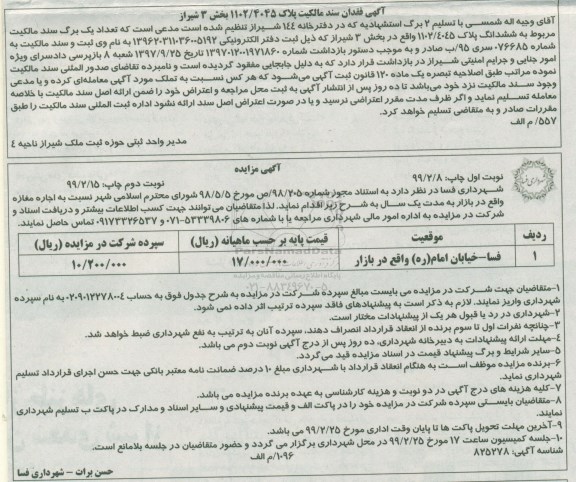 آگهی فقدان سند مالکیت پلاک ۱۱۰۲/۴۰۴۵ بخش ۳ شیراز
آقای وجیه اله شمسی با تسلیم ۲ برگ استشهادیه که در دفترخانه ۱۴۴ شیراز تنظیم شده است مدعی است که تعداد یک برگ سند مالکیت
مربوط به ششدانگ پلاک ۱۱۰۲/۴۰۴۵ واقع در بخش ۳ شیراز که ذیل ثبت دفتر الکترونیکی ۱۳۹۶۲۰۳۱۱۰۳۶۰۰۵۱۹۲ به نام وی ثبت و سند مالکیت به
شماره ۰۷۶۶۸۵ سری ۹۵/ب صادر و به موجب دستور بازداشت شماره ۱۳۹۷۰۱۲۰۰۱۹۷۱۸۶۰ تاریخ ۱۳۹۷/۹/۲۵ شعبه ۸ بازپرسی دادسرای ویژه
امور جنایی و جرایم امنیتی شیراز در بازداشت قرار دارد که به دلیل جابجایی مفقود گردیده است و نامبرده تقاضای صدور المثنی سند مالکیت
نموده مراتب طبق اصلاحیه تبصره یک ماده ۱۲۰ قانون ثبت آگهی می‌شود که هر کس نسبت به تملک مورد آگهی معامله‌ای کرده و یا مدعی
وجود سند مالکیت نزد خود می‌باشد تا ده روز پس از انتشار آگهی به ثبت محل مراجعه و اعتراض خود را ضمن ارائه اصل سند مالکیت با خلاصه
معامله تسلیم نماید و اگر ظرف مدت مقرر اعتراضی نرسید و یا در صورت اعتراض اصل سند ارائه نشود اداره ثبت المثنی سند مالکیت را طبق
مقررات صادر و به متقاضی تسلیم خواهد کرد.
۵۵۷/ م الف
مدیر واحد ثبتی حوزه ثبت ملک شیراز ناحیه ٤
آگهی مزایده
نوبت اول چاپ: ۹۹/۲/۸
نوبت دوم چاپ: ۹۹/۲/۱۵
شهرداری فسا در نظر دارد به استناد مجوز شماره ۹۸/۲۰۵/ص مورخ ۹۸/۵/۵ شورای محترم اسلامی شهر نسبت به اجاره مغازه
واقع در بازار به مدت یک سال به شرح زیر اقدام نماید. لذا متقاضیان می‌توانند جهت کسب اطلاعات بیشتر و دریافت اسناد و
شرکت در مزایده به اداره امور مالی شهرداری مراجعه یا با شماره های ۵۳۳۳۹۸۰۶-۰۷۱ و ۰۹۱۷۳۳۲۶۵۳۷ تماس حاصل نمایند.
ردیف موقعیت قیمت پایه بر حسب ماهیانه (ریال) سپرده شرکت در مزایده (ریال)
۱ فسا-خیابان امام(ره) واقع در بازار ۱۷/۰۰۰/۰۰۰ ۱۰/۲۰۰/۰۰۰
ParsNamadData
۰۲۱-۸۸۳۴۹۶۷۰-۵
۱-متقاضیان جهت شرکت در مزایده می بایست مبالغ سپرده شرکت در مزایده به شرح جدول فوق به حساب ۰۲۰۹۰۱۲۲۷۸۰۰۴ به نام سپرده
شهرداری واریز نمایند. لازم به ذکر است به پیشنهادهای فاقد سپرده ترتیب اثر داده نمی شود.
۲-شهرداری در رد یا قبول هر یک از پیشنهادات مختار است.
۳-چنانچه نفرات اول تا سوم برنده از انعقاد قرارداد انصراف دهند، سپرده آنان به ترتیب به نفع شهرداری ضبط خواهد شد.
۴-مهلت ارائه پیشنهادات به دبیرخانه شهرداری، ده روز پس از درج آگهی نوبت دوم می باشد.
۵-سایر شرایط و برگ پیشنهاد قیمت در اسناد مزایده قید می‌گردد.
۶-برنده مزایده موظف است به هنگام انعقاد قرارداد با شهرداری مبلغ ۱۰ درصد ضمانت نامه معتبر بانکی جهت حسن اجرای قرارداد تسلیم
شهرداری نماید.
۷-کلیه هزینه های درج آگهی در دو نوبت و هزینه کارشناسی به عهده برنده مزایده می باشد.
۸-متقاضیان بایستی سپرده شرکت در مزایده خود را در پاکت الف و قیمت پیشنهادی و سایر اسناد و مدارک در پاکت ب تسلیم شهرداری
نمایند.
۹-آخرین مهلت تحویل پاکت ها تا پایان وقت اداری مورخ ۹۹/۲/۲۵ می باشد.
۱۰-جلسه کمیسیون ساعت ۱۷ مورخ ۹۹/۲/۲۵ در محل شهرداری برگزار می گردد و حضور متقاضیان در جلسه بلامانع است.
شناسه آگهی: ۸۲۵۲۷۸
۱۰۹۶/م الف
حسن برات - شهرداری فسا